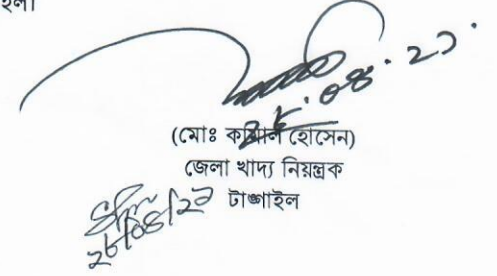 ২৮.০৪.২১.
(মোঃ কামাল হোসেন)
জেলা খাদ্য নিয়ন্ত্রক
টাঙ্গাইল
২৮/০৪/২১